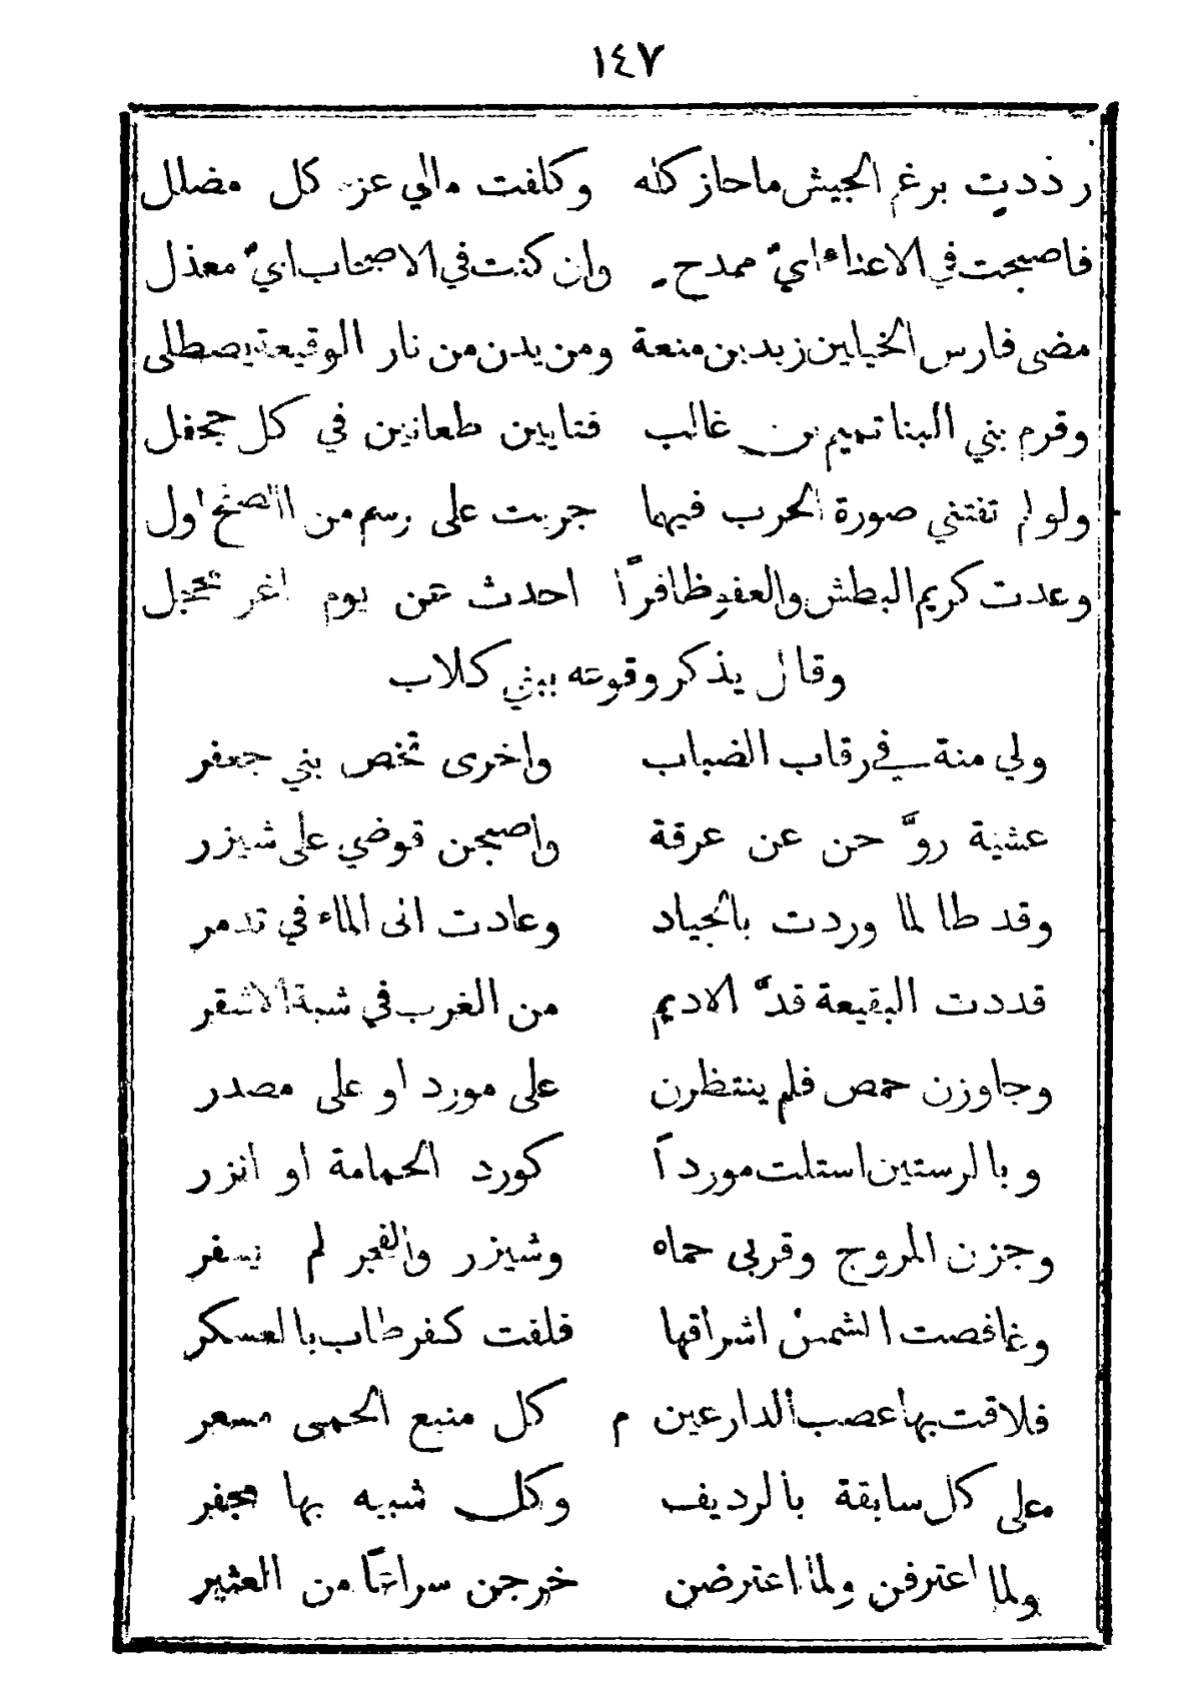 ١٤٧
رددت برغم الجيش ماحاز كله وكلفت مالي عز كل مضلل
فاصبحت في الاعداء ايّ ممدح وان كنت في الاصحاب ايّ معذل
مضى فارس الخيلين زيد بن منعة ومن يدن من نار الوقيعة يصطلى
وقرم بني البنا تميم بن غالب فتايين طعانين في كل جحفل
ولو لم تفتني صورة الحرب فيهما جريت على رسم من الصفح اول
وعدت كريم البطش والعفو ظافرًا احدث عن يوم اغر محجل
وقال يذكر وقوعه ببني كلاب
ولي منة في رقاب الضباب واخرى تخص بني جعفر
عشية روَّ حن عن عرقة واصبحن فوضي على شيزر
وقد طا لما وردت بالجياد وعادت انى الماء في تدمر
قددت البقيعة قدَّ الاديم من الغرب في شبة الاشقر
وجاوزن حمص فلم ينتظرن على مورد او على مصدر
وبالرستين استلت موردًا كورد الحمامة او انزر
وجزن المروج وقربى حماه وشيزر والفجر لم يسفر
وغافصت الشمس اشراقها فلفت كفر طاب بالعسكر
فلاقت بها عصب الدارعين م كل منبع الحمى مسعر
على كل سابقة بالرديف وكل شبيه بها مجفر
ولما اعترفن ولما اعترضن خرجن سراعًا من العثير